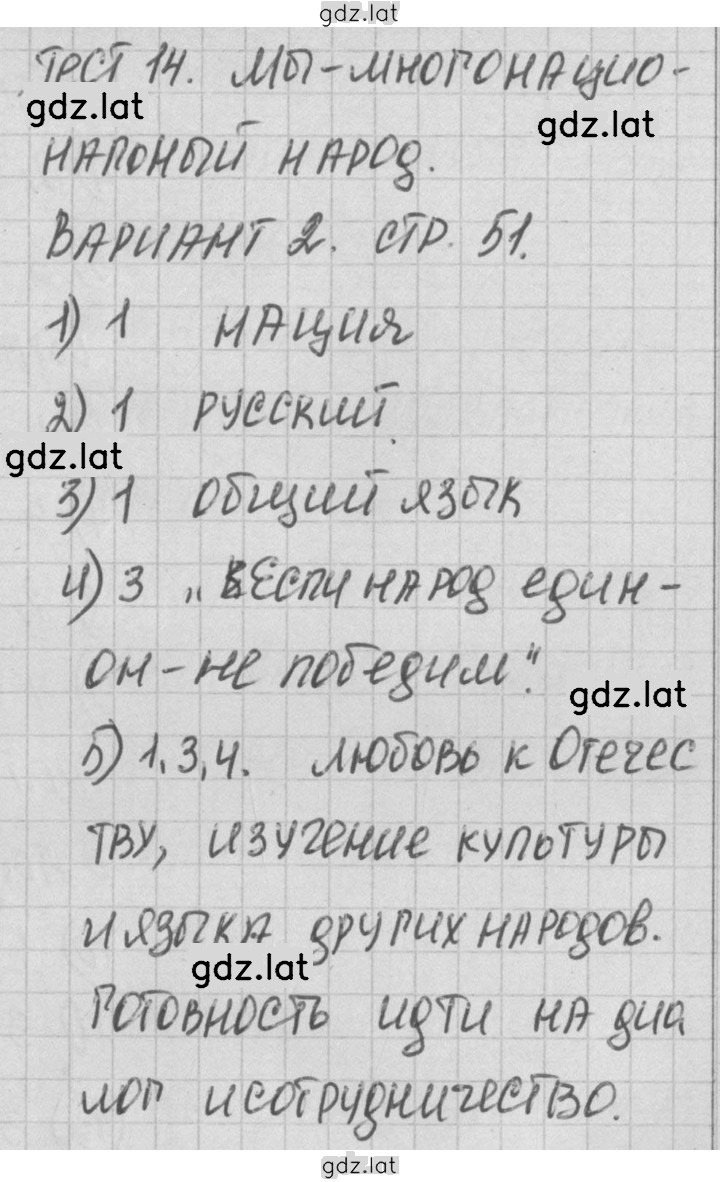 gdz.lat
ТЕСТ 14. МЫ-МНОГОНАЦИО-
gdz.lat
gdz.lat
НАЛЬНЫЙ НАРОД.
ВАРИАНТ 2. СТР. 51.
1) 1 НАЦИЯ
2) 1 РУССКИЙ
gdz.lat
3) 1 ОБЩИЙ ЯЗЫК
4) 3 „ЕСЛИ НАРОД ЕДИН-
ОН-НЕ ПОБЕДИМ".
gdz.lat
5) 1,3,4. ЛЮБОВЬ К ОТЕЧЕС
ТВУ, ИЗУЧЕНИЕ КУЛЬТУРЫ
И ЯЗЫКА ДРУГИХ НАРОДОВ.
gdz.lat
ГОТОВНОСТЬ ИДТИ НА ДИА
ЛОГ И СОТРУДНИЧЕСТВО.
gdz.lat